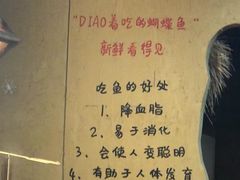 "DIAO着吃的蝴蝶鱼"
新鲜看得见
吃鱼的好处
1、降血脂
2、易于消化
3、会使人变聪明
4、有助于人体发育